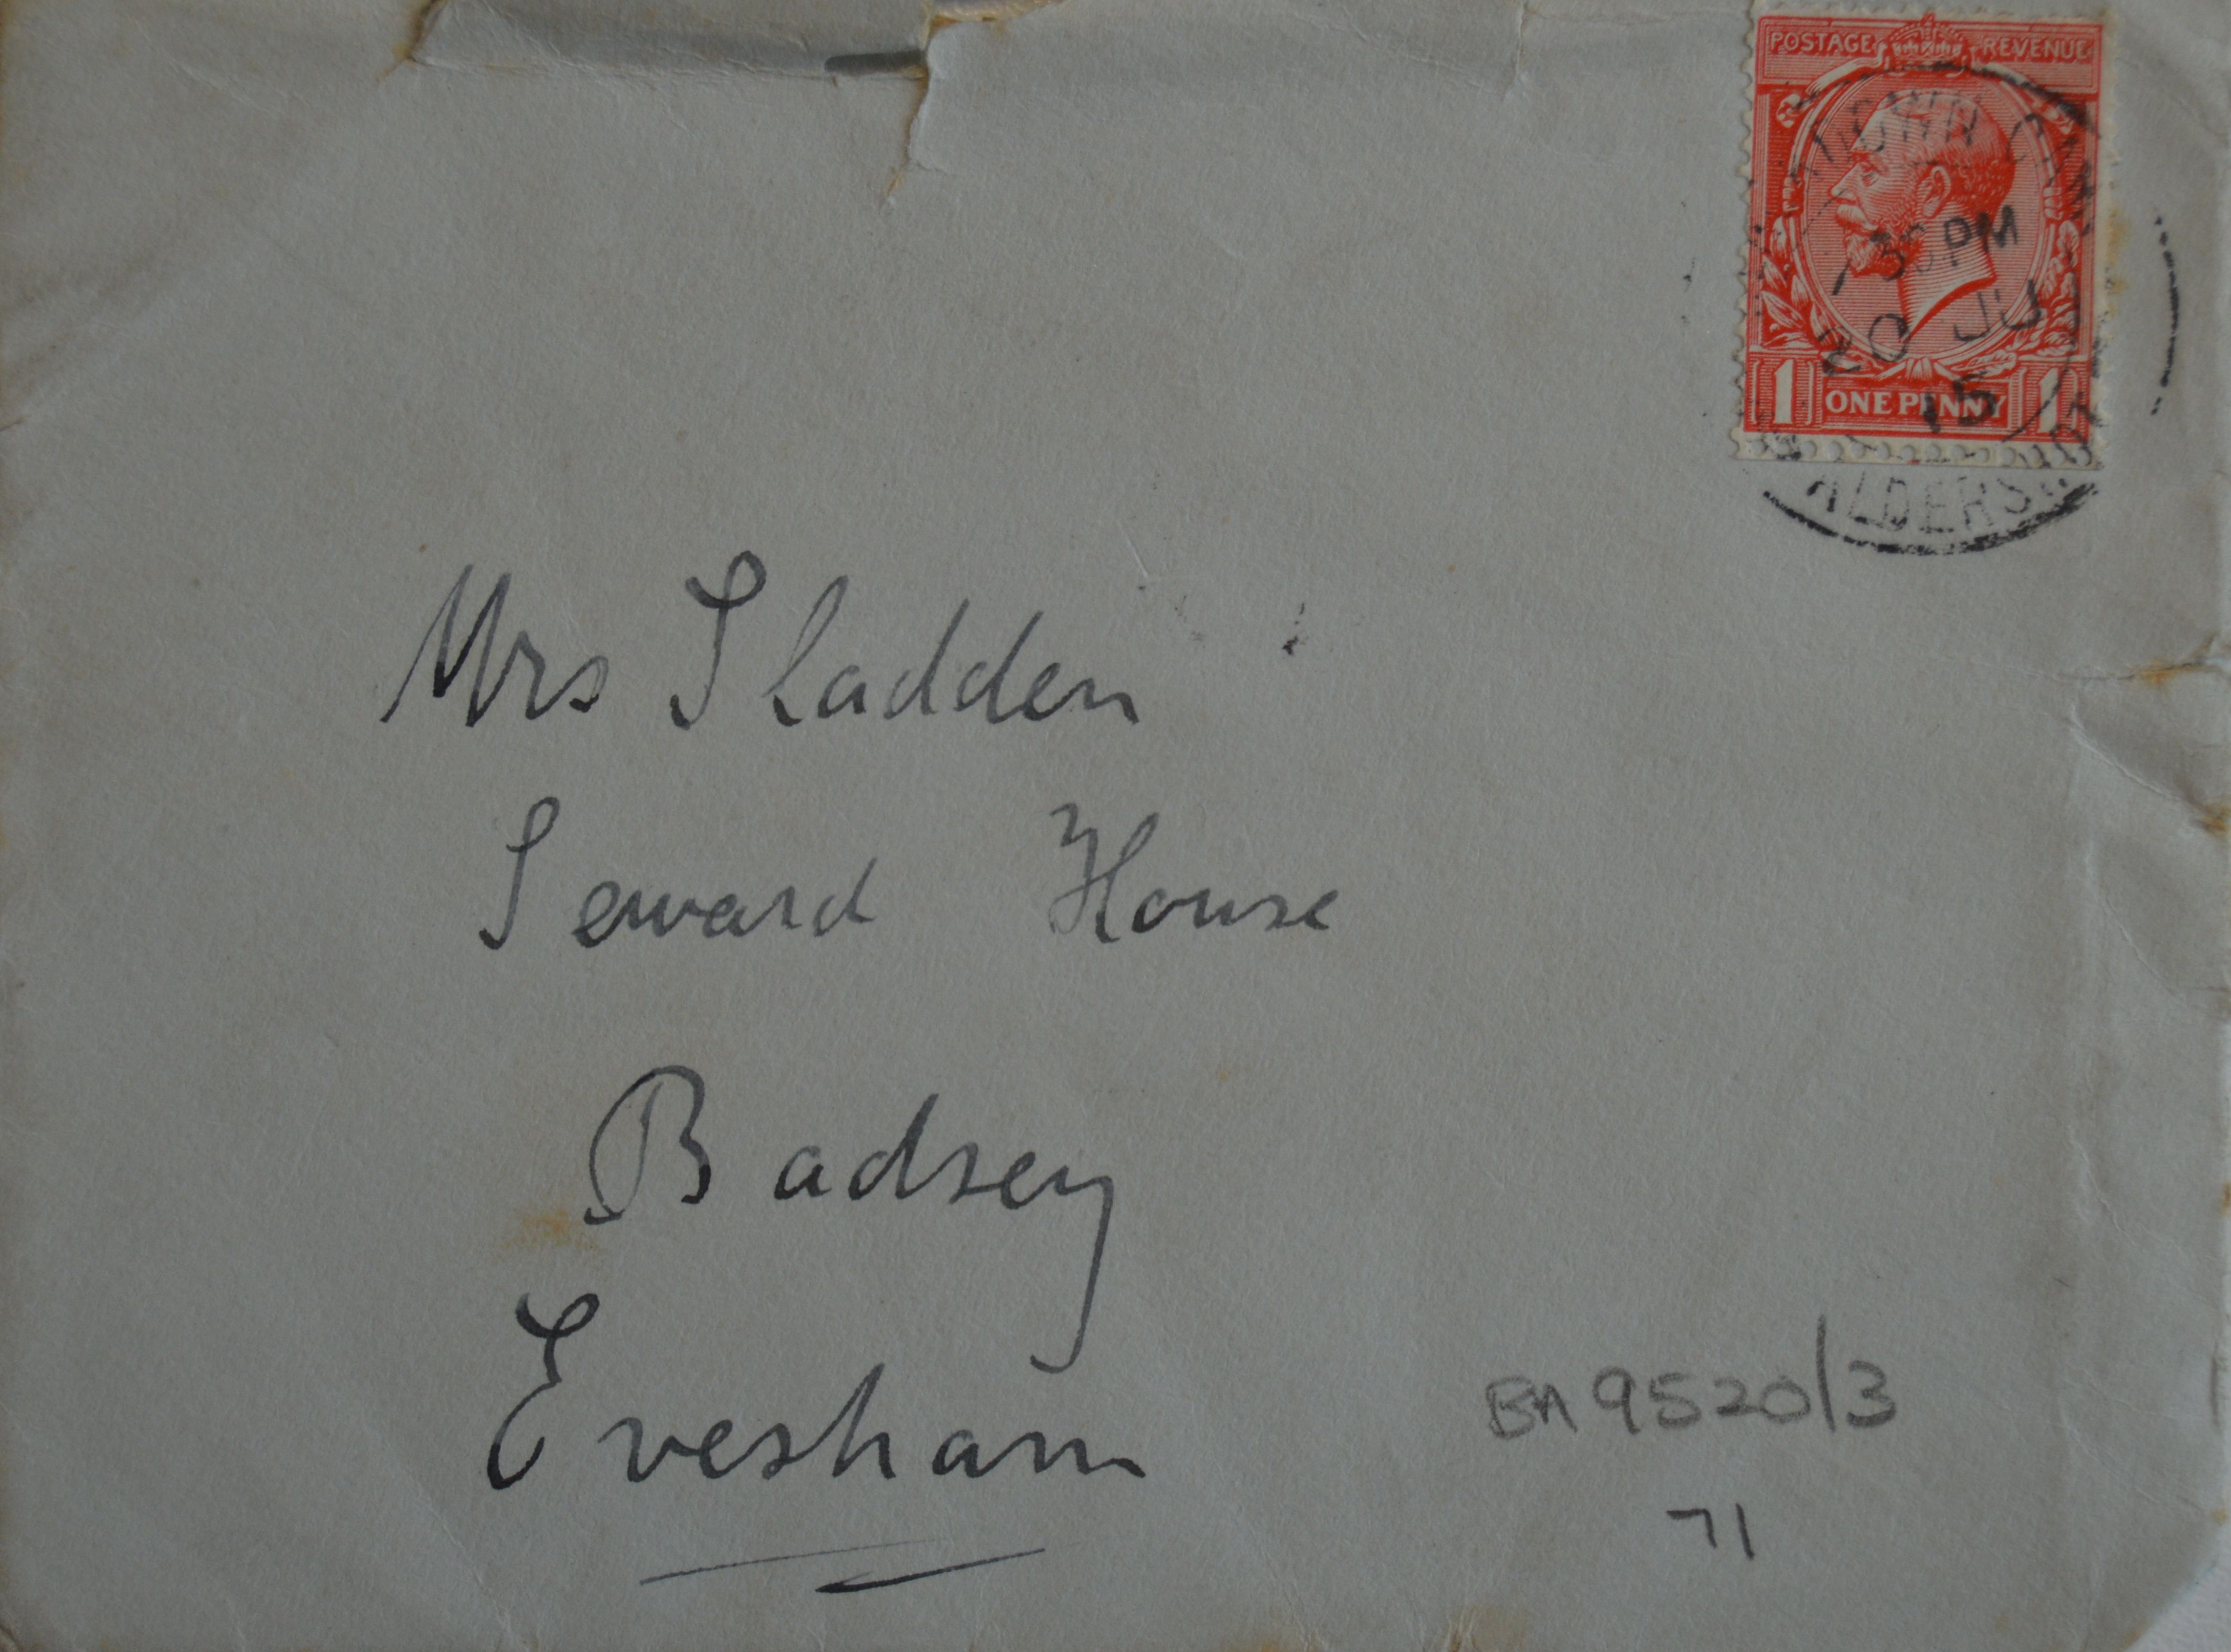 POSTAGE REVENUE
30 PM
20 JU
15
1 ONE PENNY 1
Mrs Sladden
Seward House
Badsey
Evesham
BA 9520/3
71